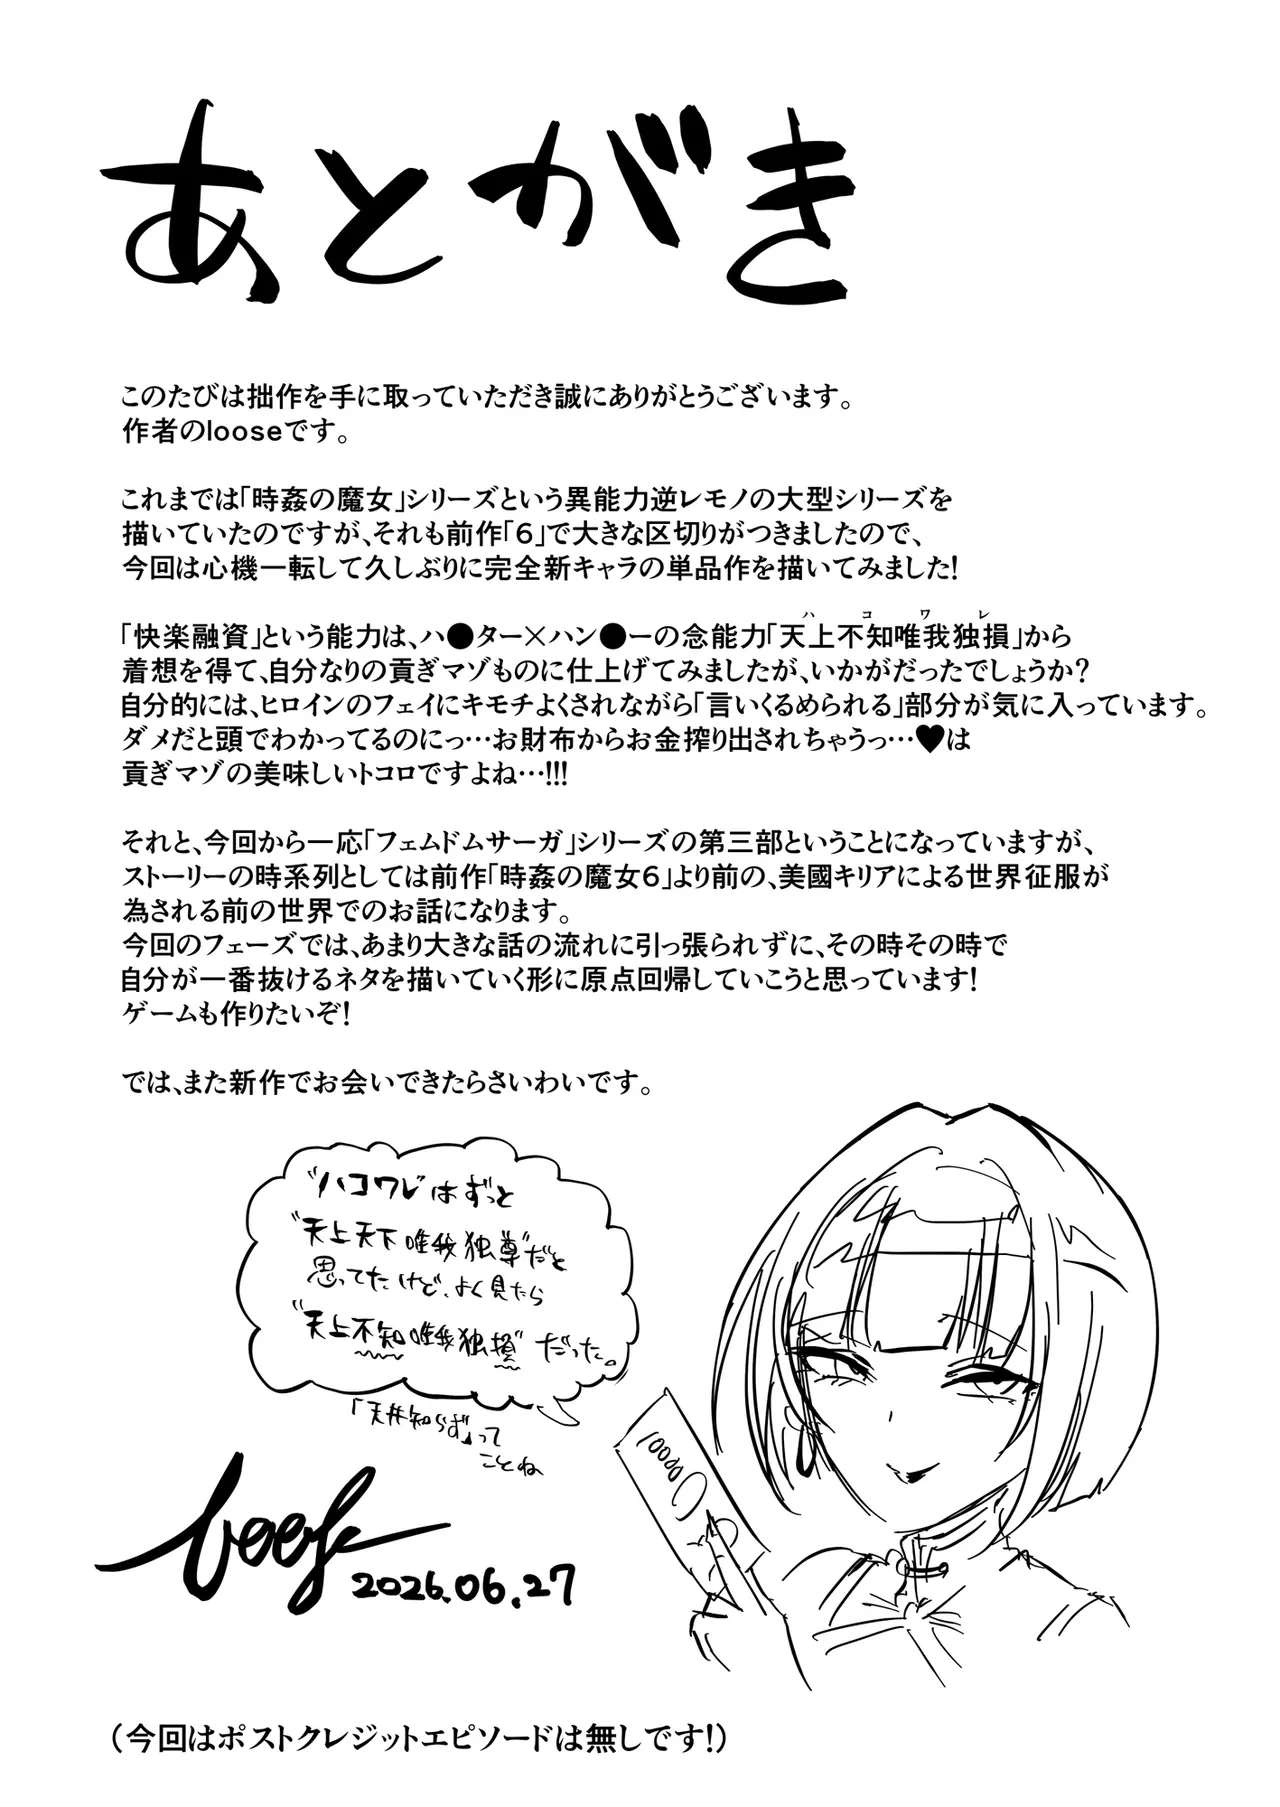 あとがき
このたびは拙作を手に取っていただき誠にありがとうございます。
作者のlooseです。
これまでは「時姦の魔女」シリーズという異能力逆レモノの大型シリーズを
描いていたのですが、それも前作「６」で大きな区切りがつきましたので、
今回は心機一転して久しぶりに完全新キャラの単品作を描いてみました!
ハコワレ
「快楽融資」という能力は、ハ●ター×ハン●ーの念能力「天上不知唯我独損」から
着想を得て、自分なりの貢ぎマゾものに仕上げてみましたが、いかがだったでしょうか?
自分的には、ヒロインのフェイにキモチよくされながら「言いくるめられる」部分が気に入っています。
ダメだと頭でわかってるのにっ…お財布からお金搾り出されちゃうっ…♥は
貢ぎマゾの美味しいトコロですよね…!!!
それと、今回から一応「フェムドムサーガ」シリーズの第三部ということになっていますが、
ストーリーの時系列としては前作「時姦の魔女６」より前の、美國キリアによる世界征服が
為される前の世界でのお話になります。
今回のフェーズでは、あまり大きな話の流れに引っ張られずに、その時その時で
自分が一番抜けるネタを描いていく形に原点回帰していこうと思っています!
ゲームも作りたいぞ!
では、また新作でお会いできたらさいわいです。
"ハコワレ"はずっと
"天上天下唯我独尊"だと
思ってたけど、よく見たら
"天上不知唯我独損"だった。
「天井知らず」って
ことね
10000
loose
2026.06.27
（今回はポストクレジットエピソードは無しです!）